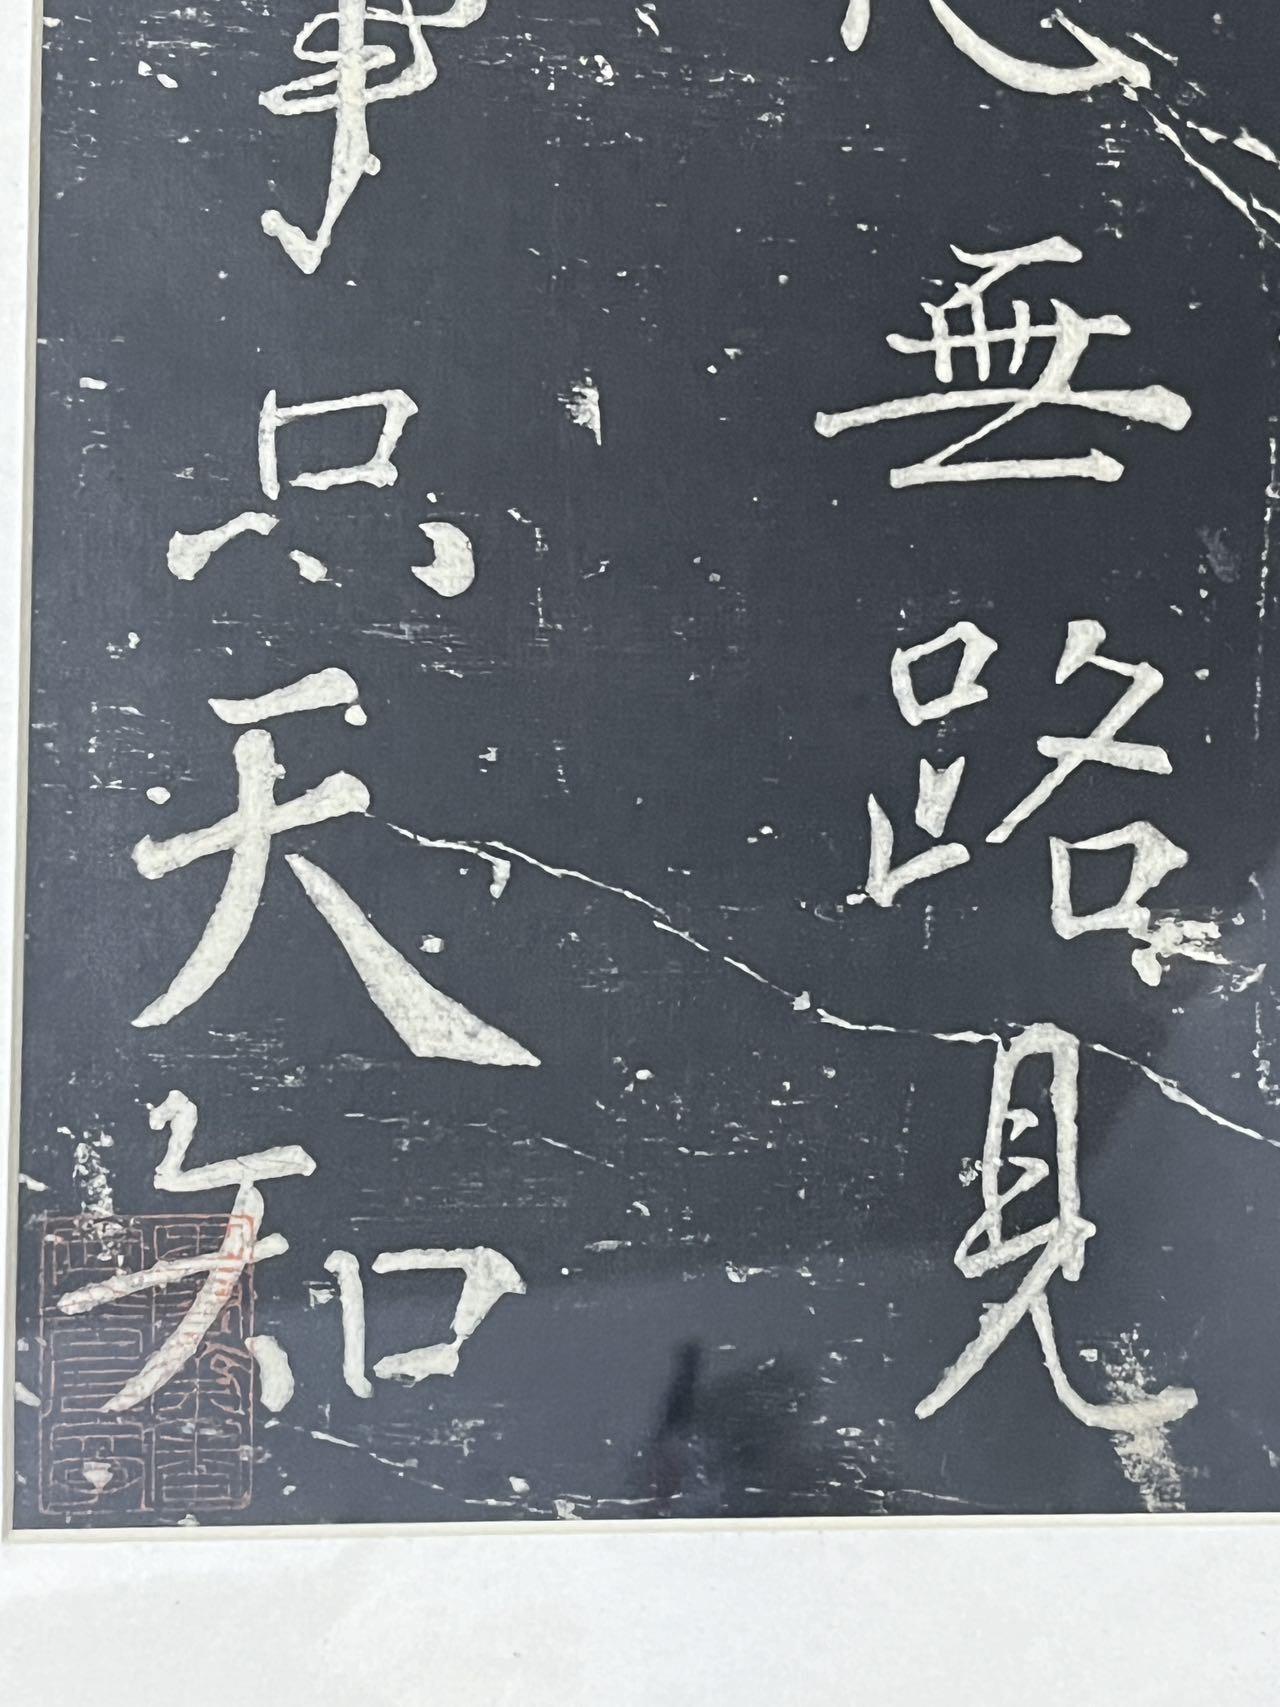 無路見
事只天知